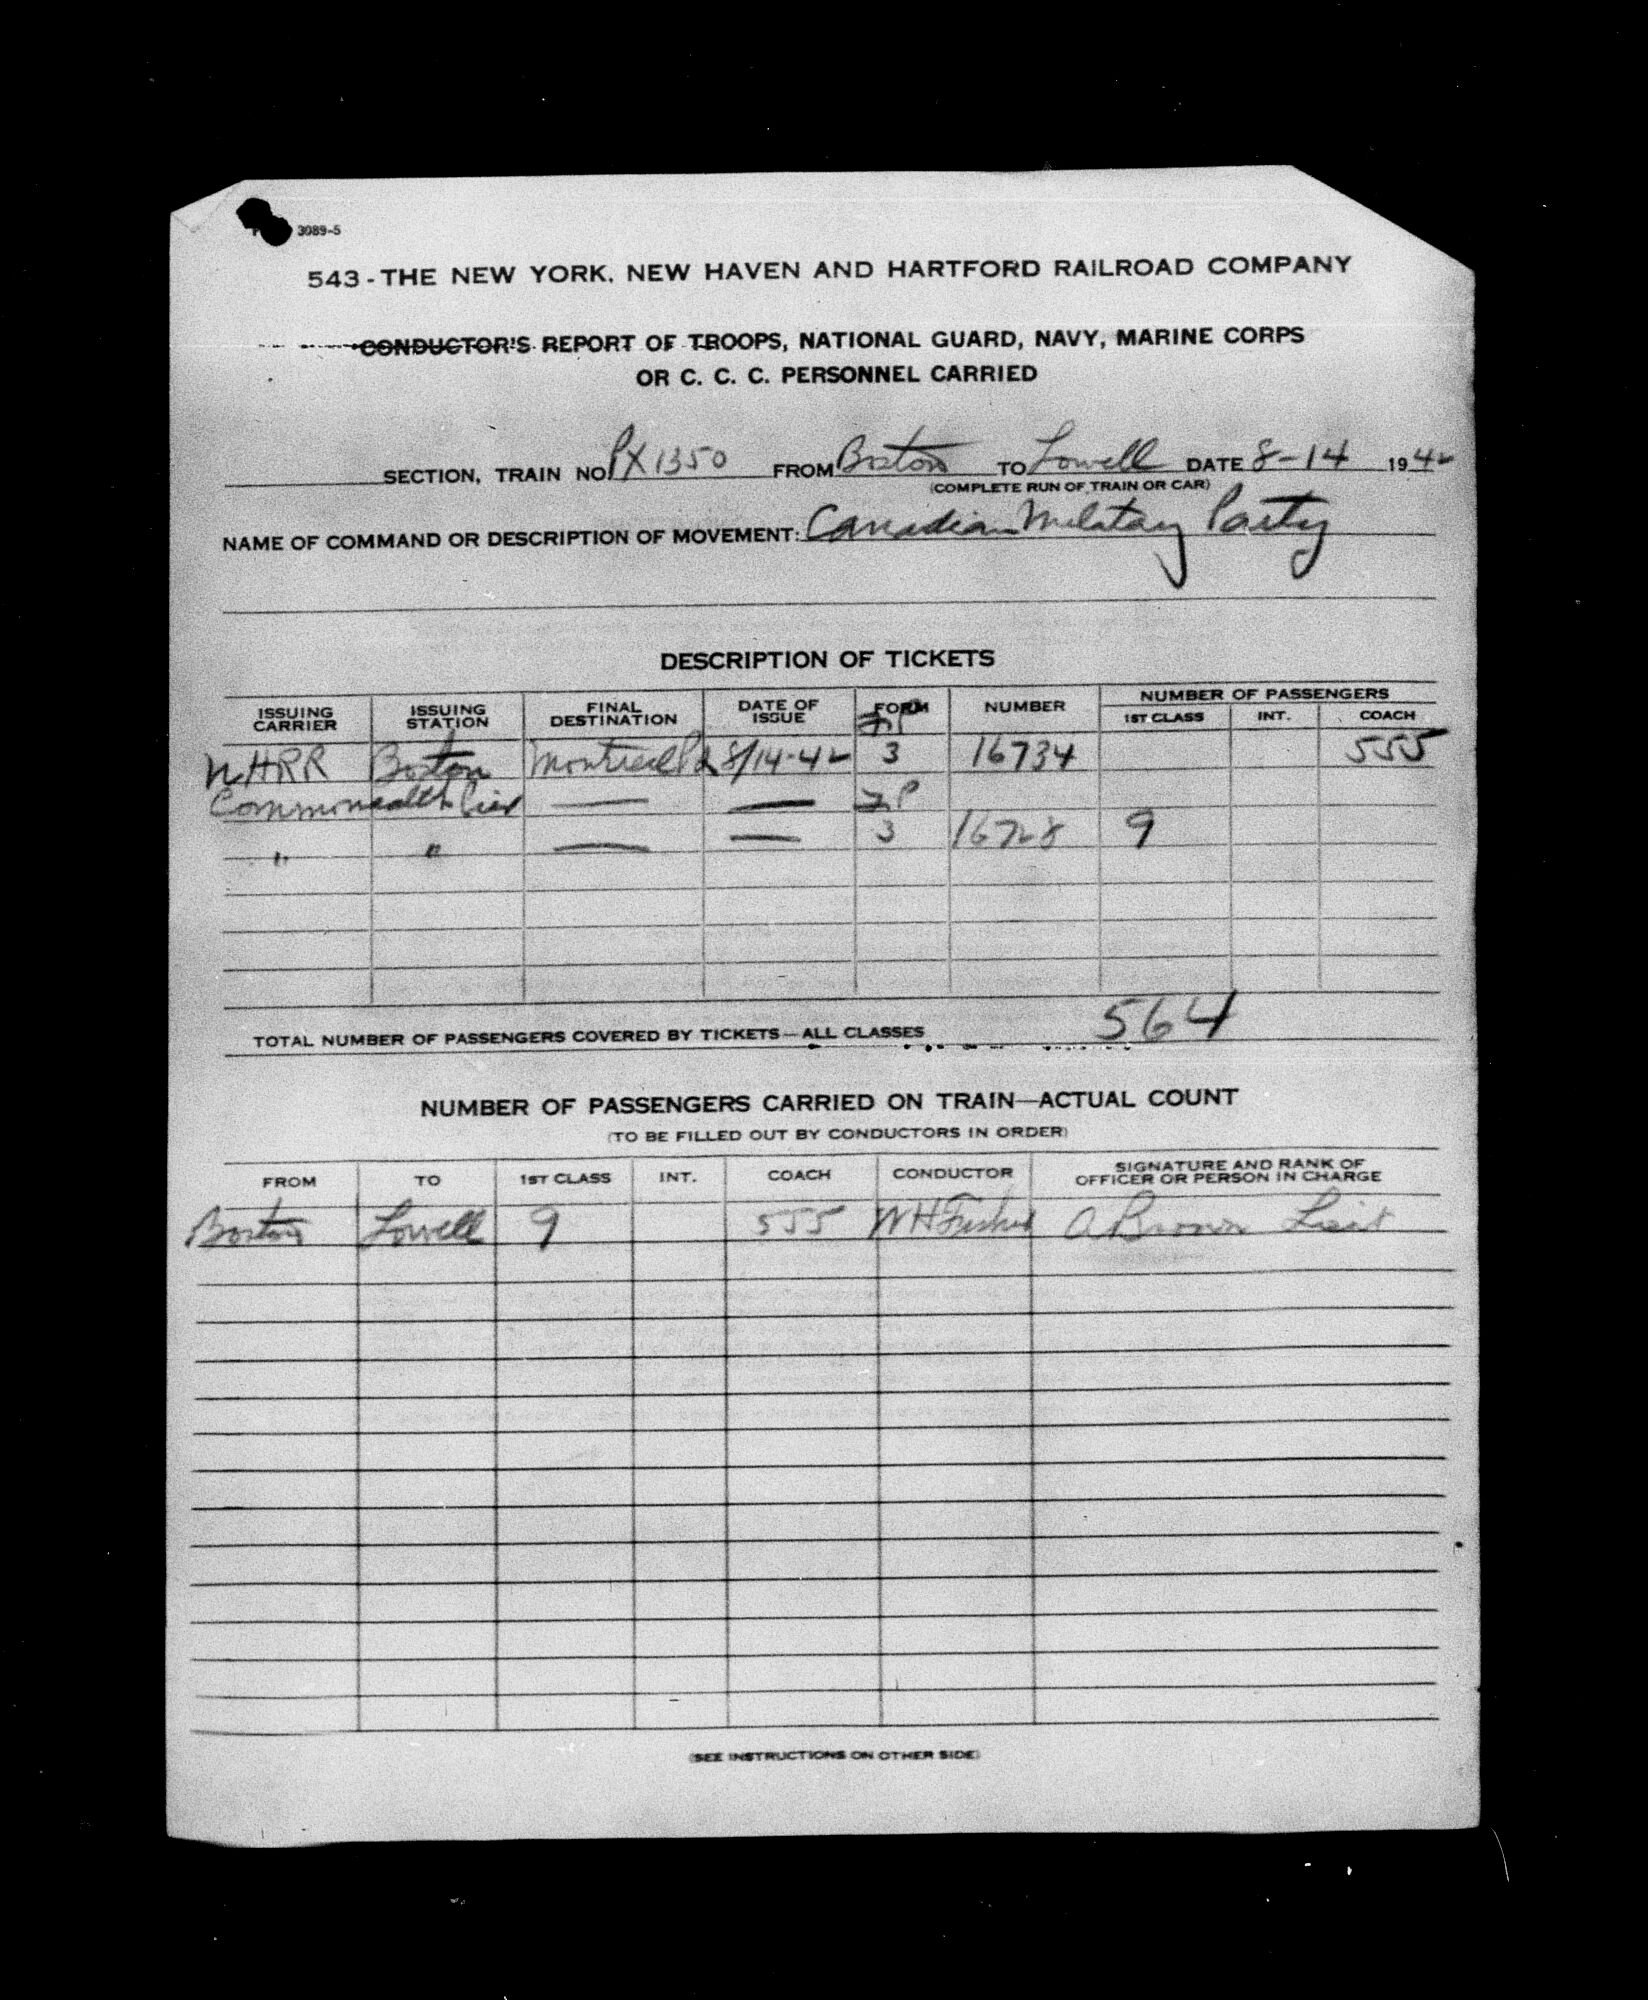 3089-5
543 - THE NEW YORK, NEW HAVEN AND HARTFORD RAILROAD COMPANY
CONDUCTOR'S REPORT OF TROOPS, NATIONAL GUARD, NAVY, MARINE CORPS
OR C. C. C. PERSONNEL CARRIED
SECTION, TRAIN NO PX1350 FROM Boston TO Lowell DATE 8-14 1942
(COMPLETE RUN OF TRAIN OR CAR)
NAME OF COMMAND OR DESCRIPTION OF MOVEMENT: Canadian Military Party
DESCRIPTION OF TICKETS
ISSUING CARRIER ISSUING STATION FINAL DESTINATION DATE OF ISSUE FORM NUMBER NUMBER OF PASSENGERS
1ST CLASS INT. COACH
NHRR Boston Montreal 8/14-42 3 16734 555
Commonwealth Pier — —
" " — — 3 16728 9
TOTAL NUMBER OF PASSENGERS COVERED BY TICKETS—ALL CLASSES 564
NUMBER OF PASSENGERS CARRIED ON TRAIN—ACTUAL COUNT
(TO BE FILLED OUT BY CONDUCTORS IN ORDER)
FROM TO 1ST CLASS INT. COACH CONDUCTOR SIGNATURE AND RANK OF OFFICER OR PERSON IN CHARGE
Boston Lowell 9 555 WH A Brown
(SEE INSTRUCTIONS ON OTHER SIDE)